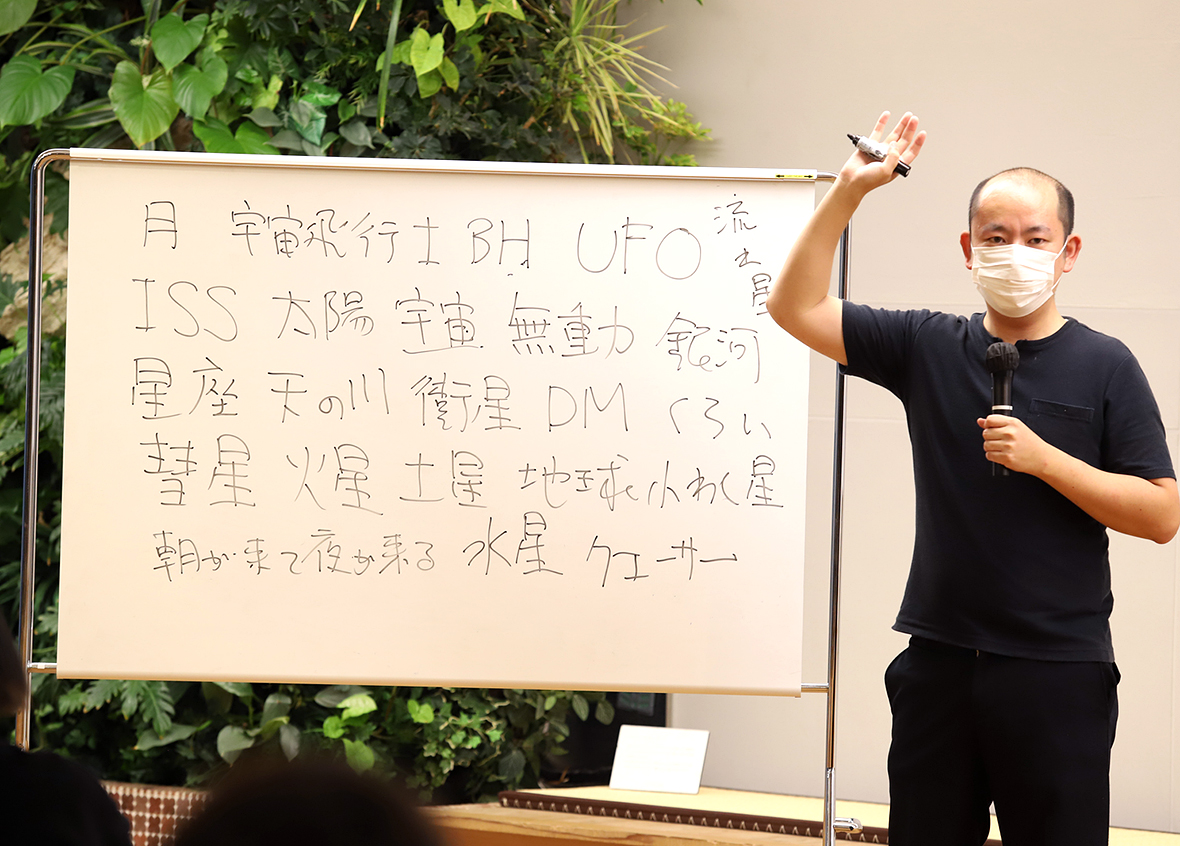 月 宇宙飛行士 BH UFO 流れ星
ISS 太陽 宇宙 無重力 銀河
星座 天の川 衛星 DM くろい
彗星 火星 土星 地球 小わく星
朝が来て夜が来る 水星 クエーサー